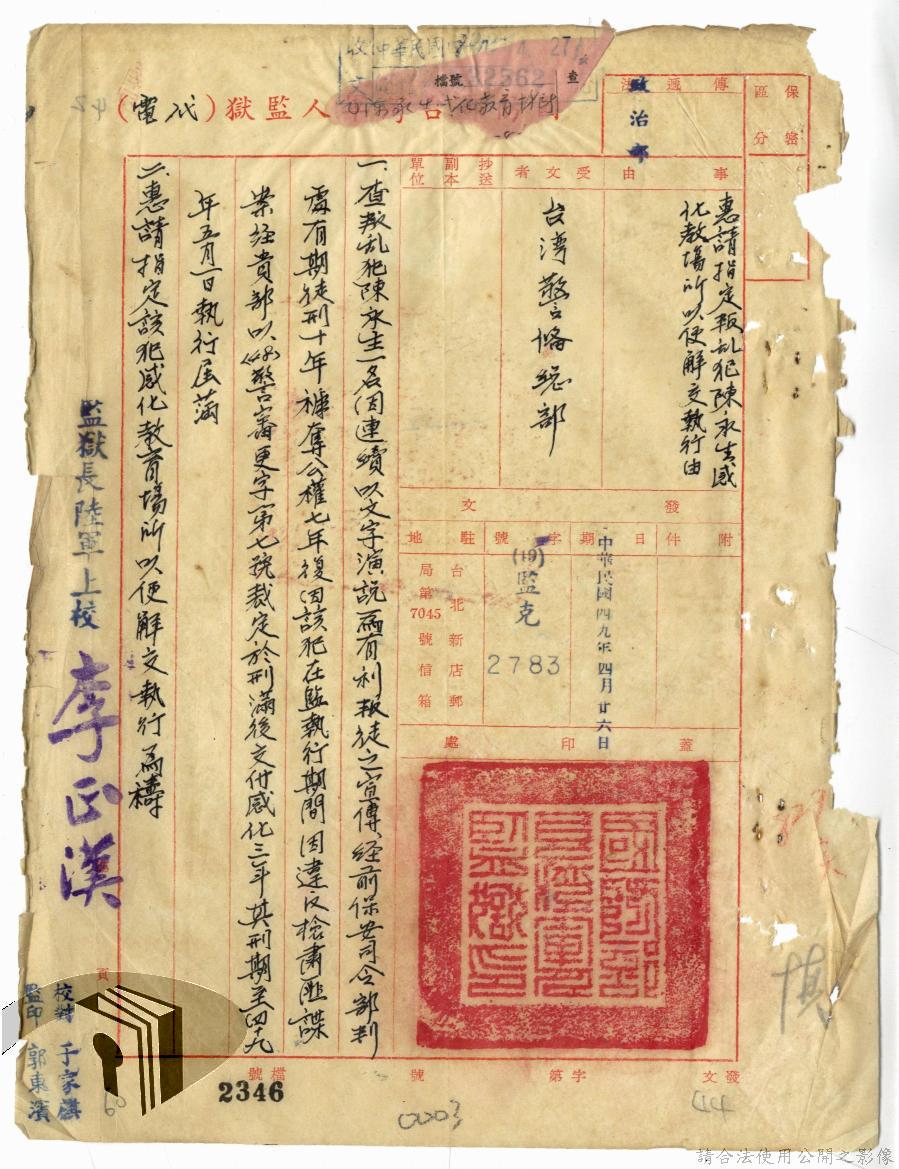 保密
區分
傳遞法
政治部
(代電)
人監獄
收
中華民國
27
文
檔號
32562
查
事由
惠請指定叛乱犯陳永生感
化教場所以便解交執行由
受文者
台湾警俻総部
抄送
副本
單位
發文
附件
日期
中華民國四九年四月廿六日
字號
(49)監克
2783
駐地
台北新店郵
局第7045號信箱
蓋印處
一、查叛乱犯陳永生一名因連續以文字演說而有利叛徒之宣傳、経前保安司令部判
處有期徒刑十年褫奪公權七年復因該犯在監執行期間因違反檢肅匪諜
案経貴部以(48)警審更字第七號裁定於刑滿後交付感化三年其刑期至四十九
年五月一日執行屆滿
二、惠請指定該犯感化教育場所以便解交執行為禱
監獄長陸軍上校 李正漢
校對 于家祺
監印 郭東濱
頁
檔號
2346
發文
字第
號
0003
44
60
請合法使用公開之影像